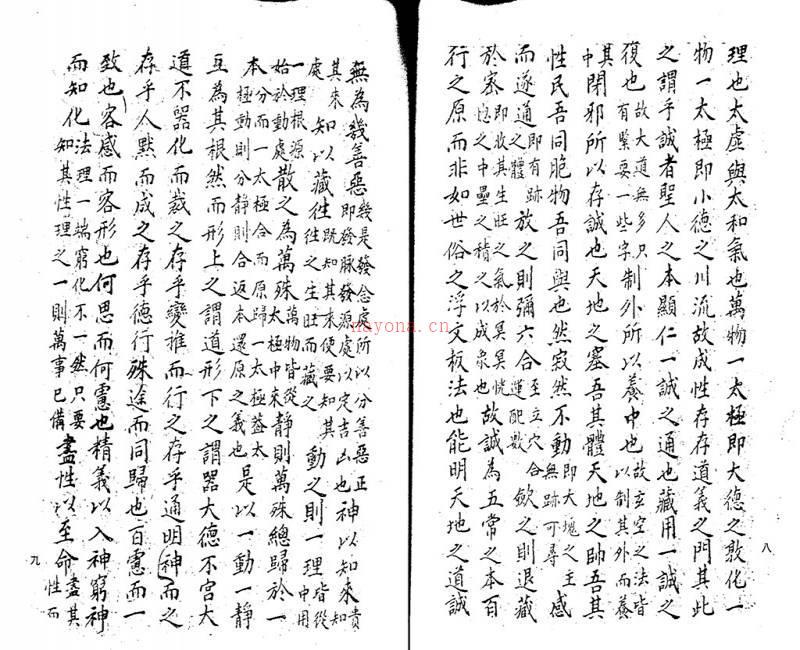 理也太虛與太和氣也萬物一太極即大德之敦化一
物一太極即小德之川流故成性存存道義之門其此
之謂乎誠者聖人之本顯仁一誠之通也藏用一誠之
復也故大道無多只有緊要一些字制外所以養中也故玄空之法皆以制其外而養
其中閉邪所以存誠也天地之塞吾其體天地之帥吾其
性民吾同胞物吾同與也然寂然不動即大塊之主無跡可尋感
而遂通即有跡之體放之則彌六合至立穴合運配數歛之則退藏
於密即收其生旺之氣於冥冥恍惚之中壘之積之以成象也故誠為五常之本百
行之原而非如世俗之浮文板法也能明天地之道誠
八
無為幾善惡幾是發念處所以分善惡正即發脉發源處以定吉凶也神以知來貴知
其來處知以藏往既知其來便要知其往之生旺而藏之動之則一理皆從中用
一理根源始於動處散之為萬殊萬物皆從太極中來靜則萬殊總歸於一
本分而一太極合而原歸一太極蓋太極動則分靜則合返本還原之義也是以一動一靜
互為其根然而形上之謂道形下之謂器大德不宮大
道不器化而裁之存乎變推而行之存乎通明神而之
存乎人默而成之存乎德行殊途而同歸也百慮而一
致也客感而客形也何思而何慮也精義以入神窮神
而知化法理一端窮化不一然只要知其性理之一則萬事已備盡性以至命盡其性而
九
nayona.cn